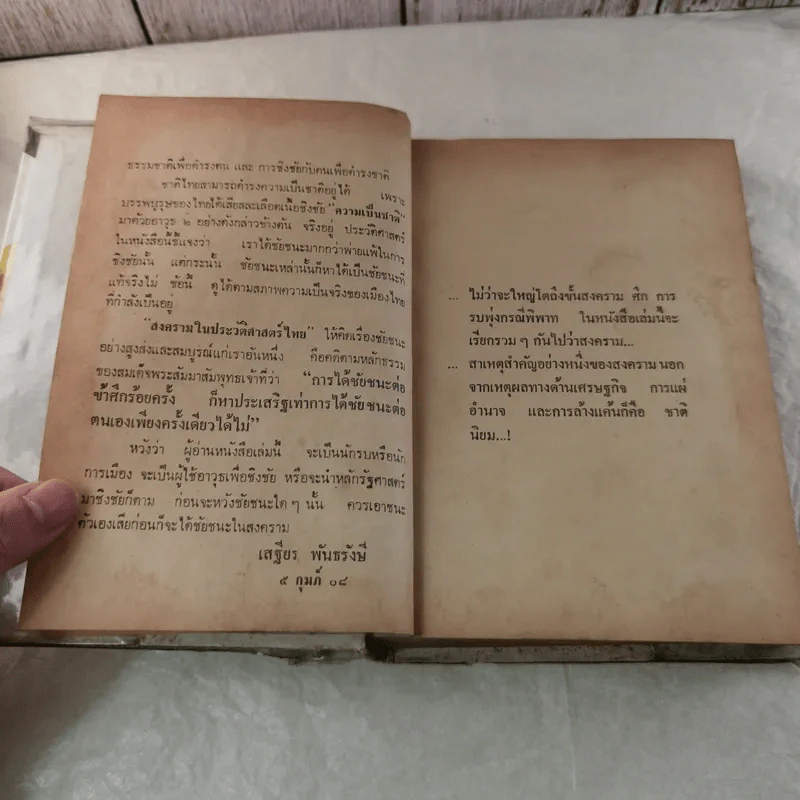 ธรรมชาติเพื่อดำรงตน และ การชิงชัยกับคนเพื่อดำรงชาติ
ชาติไทยสามารถดำรงความเป็นชาติอยู่ได้ เพราะ
บรรพบุรุษของไทยได้เสียสละเลือดเนื้อชิงชัย "ความเป็นชาติ"
มาด้วยอาวุธ ๒ อย่างดังกล่าวข้างต้น จริงอยู่ ประวัติศาสตร์
ในหนังสือนี้ชี้แจงว่า เราได้ชัยชนะมากกว่าพ่ายแพ้ในการ
ชิงชัยนั้น แต่กระนั้น ชัยชนะเหล่านั้นก็หาได้เป็นชัยชนะที่
แท้จริงไม่ ข้อนี้ ดูได้ตามสภาพความเป็นจริงของเมืองไทย
ที่กำลังเป็นอยู่
"สงครามในประวัติศาสตร์ไทย" ให้คิดเรื่องชัยชนะ
อย่างสูงส่งและสมบูรณ์แก่เราอันหนึ่ง คือคติตามหลักธรรม
ของสมเด็จพระสัมมาสัมพุทธเจ้าที่ว่า "การได้ชัยชนะต่อ
ข้าศึกร้อยครั้ง ก็หาประเสริฐเท่าการได้ชัยชนะต่อ
ตนเองเพียงครั้งเดียวได้ไม่"
หวังว่า ผู้อ่านหนังสือเล่มนี้ จะเป็นนักรบหรือนัก
การเมือง จะเป็นผู้ใช้อาวุธเพื่อชิงชัย หรือจะนำหลักรัฐศาสตร์
มาชิงชัยก็ตาม ก่อนจะหวังชัยชนะใด ๆ นั้น ควรเอาชนะ
ตัวเองเสียก่อนก็จะได้ชัยชนะในสงคราม
เสฐียร พันธรังษี
๕ กุมภ์ ๐๘
... ไม่ว่าจะใหญ่โตถึงขั้นสงคราม ศึก การ
รบพุ่งกรณีพิพาท ในหนังสือเล่มนี้จะ
เรียกรวม ๆ กันไปว่าสงคราม...
... สาเหตุสำคัญอย่างหนึ่งของสงคราม นอก
จากเหตุผลทางด้านเศรษฐกิจ การแผ่
อำนาจ และการล้างแค้นก็คือ ชาติ
นิยม...!